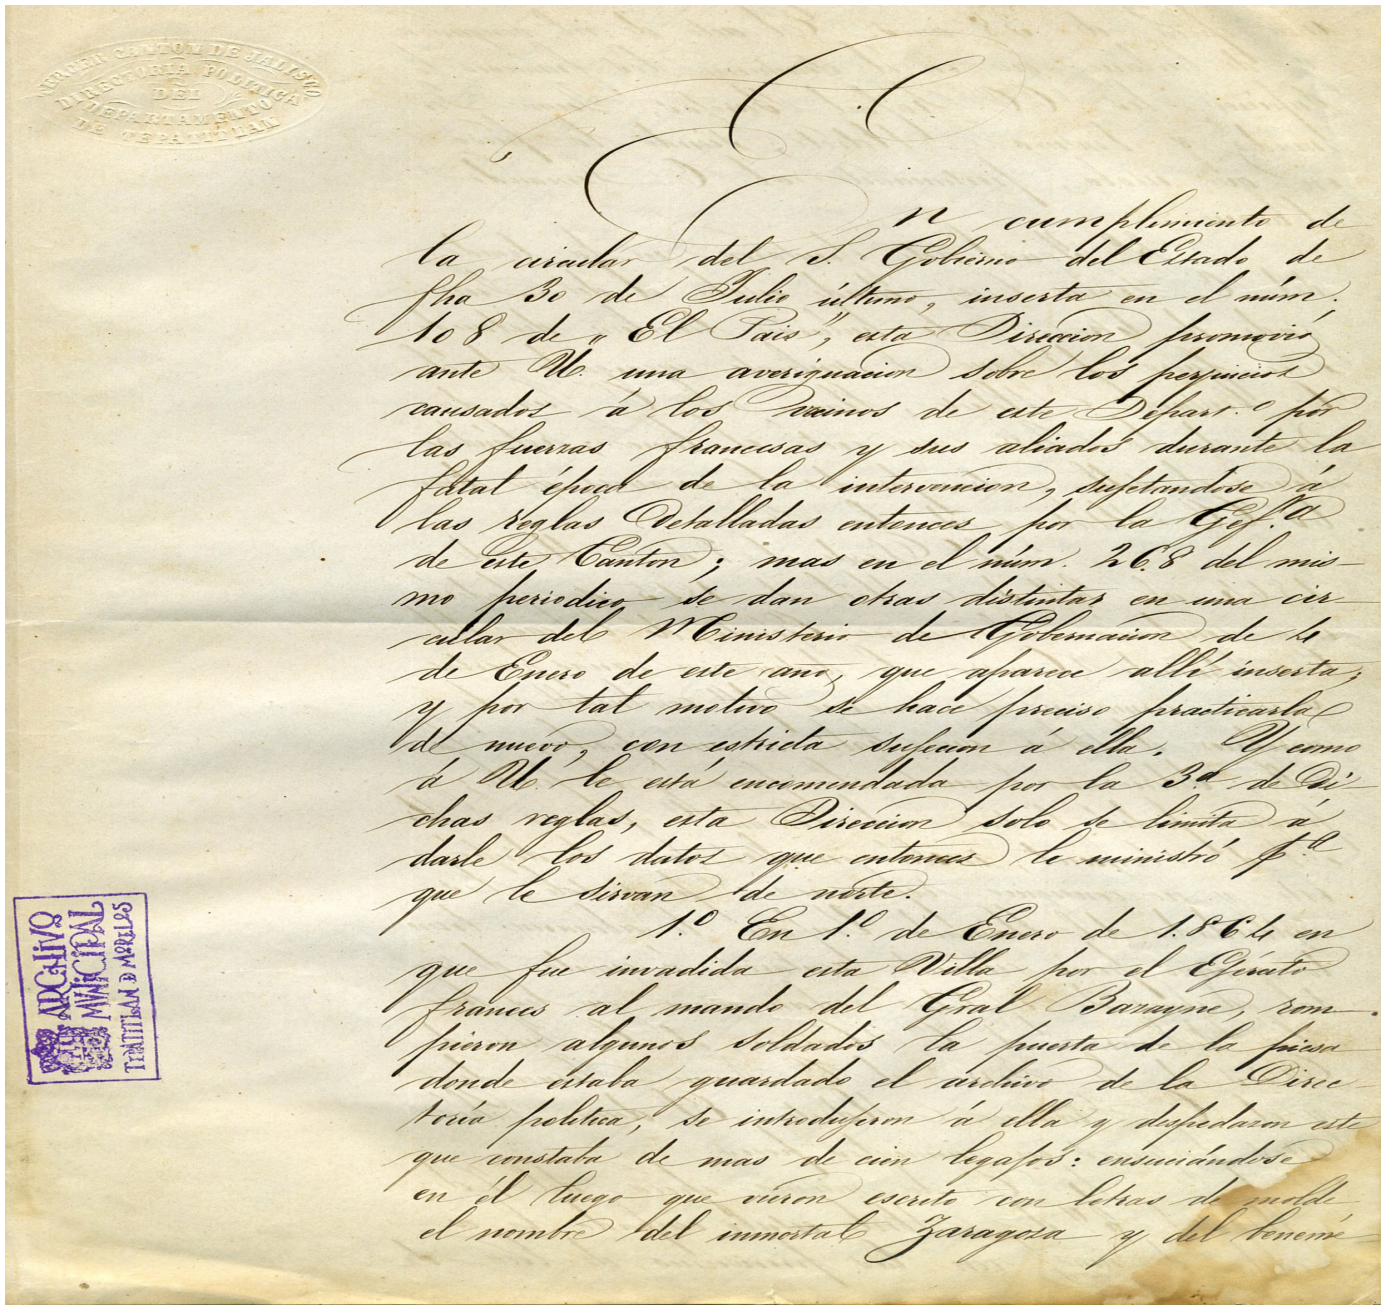 TERCER CANTON DE JALISCO
DIRECTORIA POLITICA
DEL
DEPARTAMENTO
DE TEPATITLAN
En cumplimiento de
la circular del S. Gobierno del Estado de
fha 30 de Julio último, inserta en el núm.
108 de "El Pais", esta Direccion promovió
ante U. una averiguacion sobre los perjuicios
causados á los vecinos de este Depart.o por
las fuerzas francesas y sus aliados durante la
fatal época de la intervencion, sujetandose á
las reglas detalladas entonces por la Gef.ra
de este Canton; mas en el núm. 268 del mis-
mo periodico se dan otras distintas en una cir-
cular del Ministerio de Gobernacion de 4
de Enero de este ano, que aparece allí inserta;
y por tal motivo se hace preciso practicarla
de nuevo, con estricta sujecion á ella. Y como
á U. le está encomendada por la 3a de di-
chas reglas, esta Direccion solo se limita á
darle los datos que entonces le ministró p.a
que le sirvan de norte.
1.o En 1.o de Enero de 1.864 en
que fue invadida esta Villa por el Ejército
frances al mando del Gral Bazayne, rom-
pieron algunos soldados la puerta de la piesa
donde estaba guardado el archivo de la Direc-
toría politica, se introdujeron á ella y despedazon este
que constaba de mas de cien legajos: ensuciándose
en él luego que vieron escrito con letras de molde
el nombre del inmortal Zaragoza y del benemé-
ARCHIVO
MUNICIPAL
TEPATITLAN D MORELOS